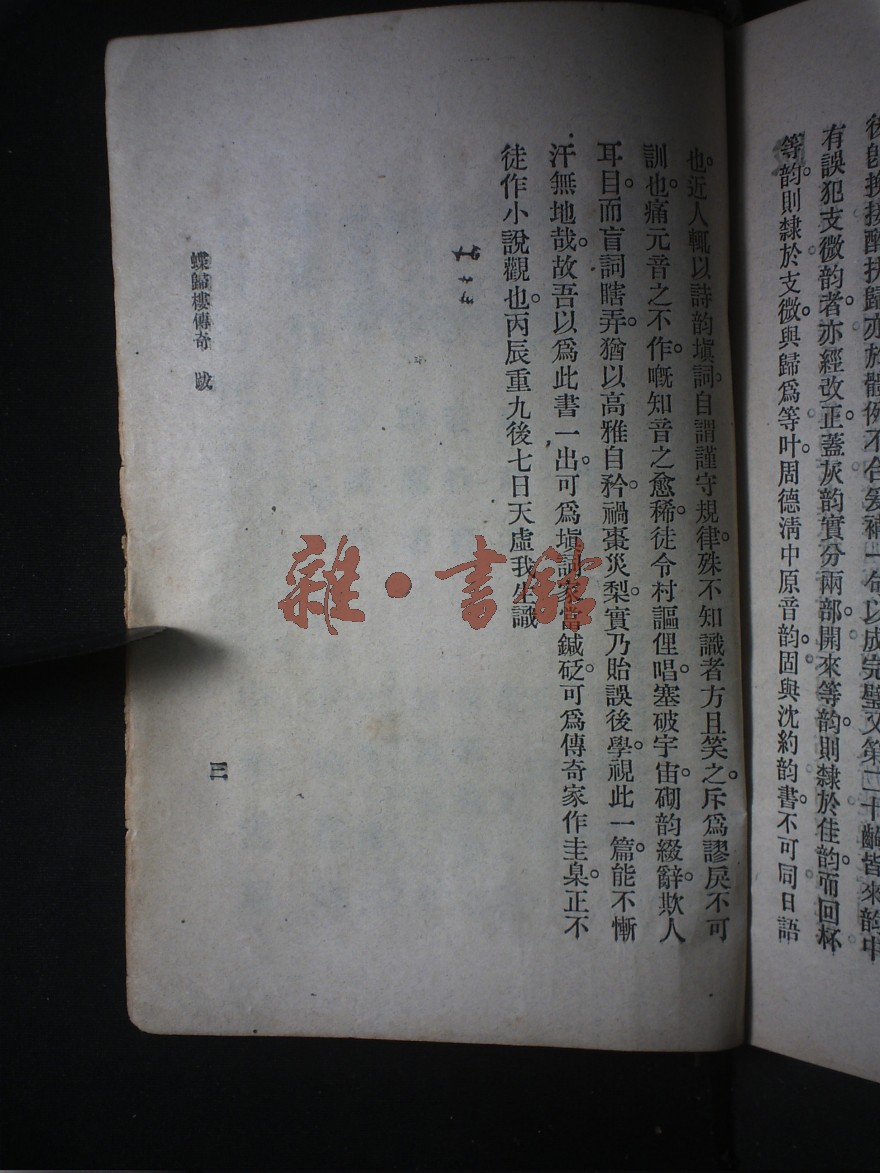 後卽換接醉扶歸亦於體例不合爰補一句以成完璧又第二十齣皆來韵中
有誤犯支微韵者。亦經改正。蓋灰韵實分兩部。開來等韵。則隸於佳韵。而回杯
等韵。則隸於支微。與歸爲等叶。周德淸中原音韵。固與沈約韵書。不可同日語
也。近人輒以詩韵塡詞。自謂謹守規律。殊不知識者方且笑之。斥爲謬戾不可
訓也。痛元音之不作。嘅知音之愈稀。徒令村謳俚唱。塞破宇宙。砌韵綴辭。欺人
耳目。而盲詞瞎弄。猶以高雅自矜。禍棗災梨。實乃貽誤後學。視此一篇。能不慚
汗無地哉。故吾以爲此書一出。可爲塡詞家當鍼砭。可爲傳奇家作圭臬。正不
徒作小說觀也。丙辰重九後七日天虛我生識
蝶歸樓傳奇 跋
三
雜·書館